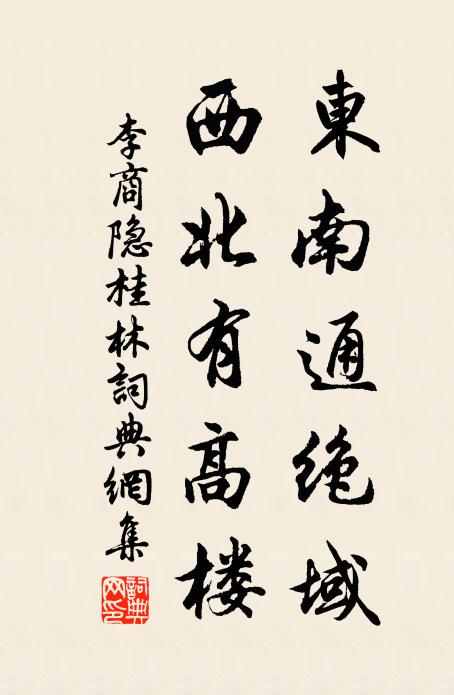 東南通绝域
西北有高楼
李商隐桂林詞典網集
詞典
网印